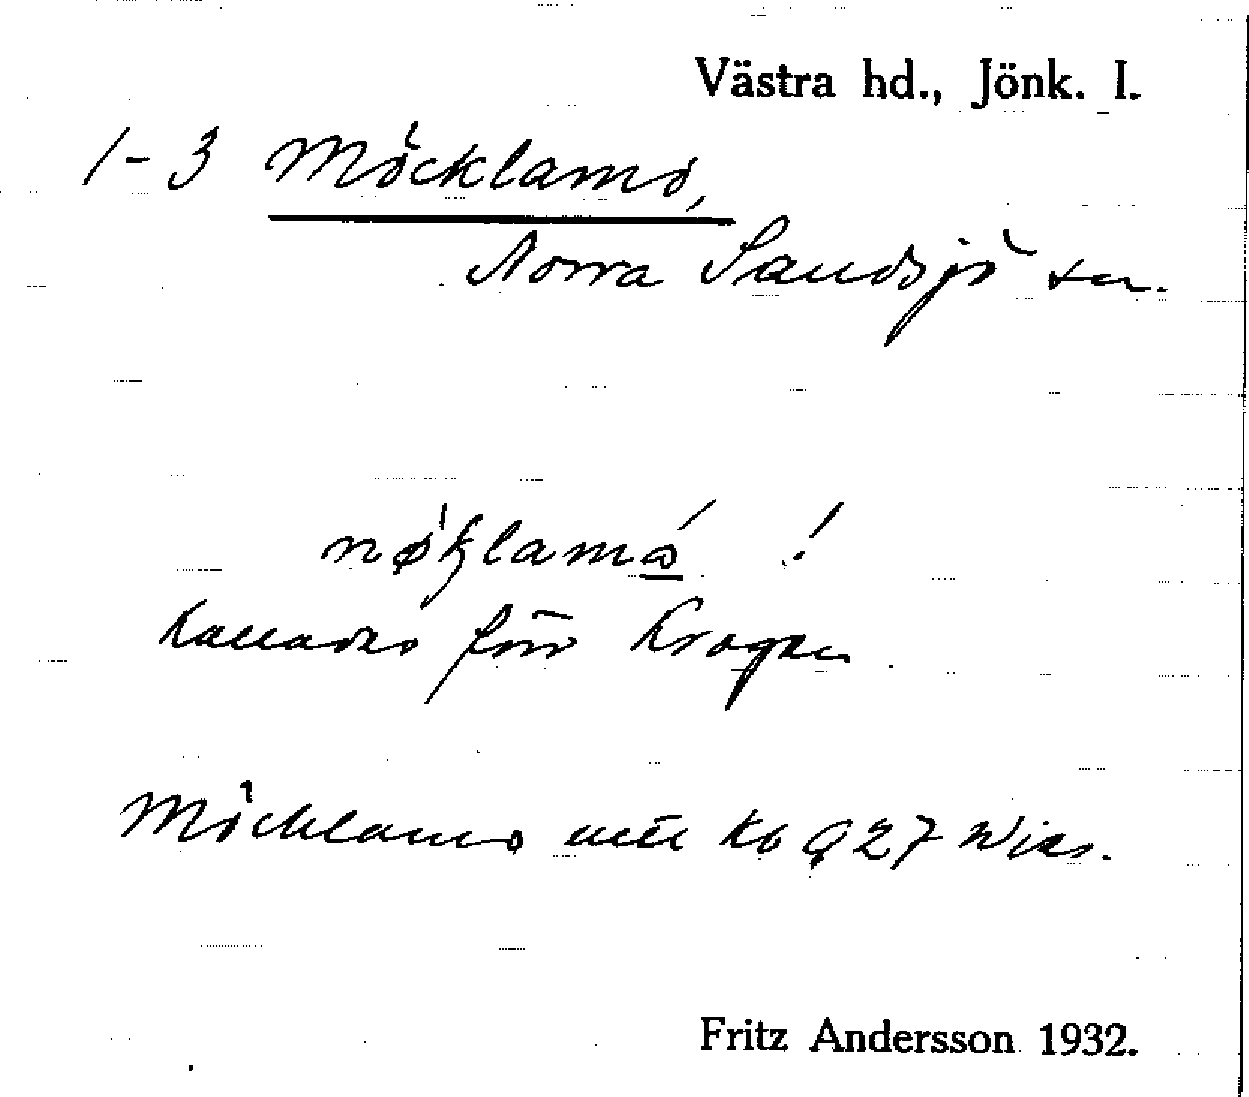 Västra hd., Jönk. l.
1-3 Möcklamo,
Norra Sandsjö sn.
nøklamo !
Kallades förr Krogen
Möcklamo Kb 927
Fritz Andersson 1932.